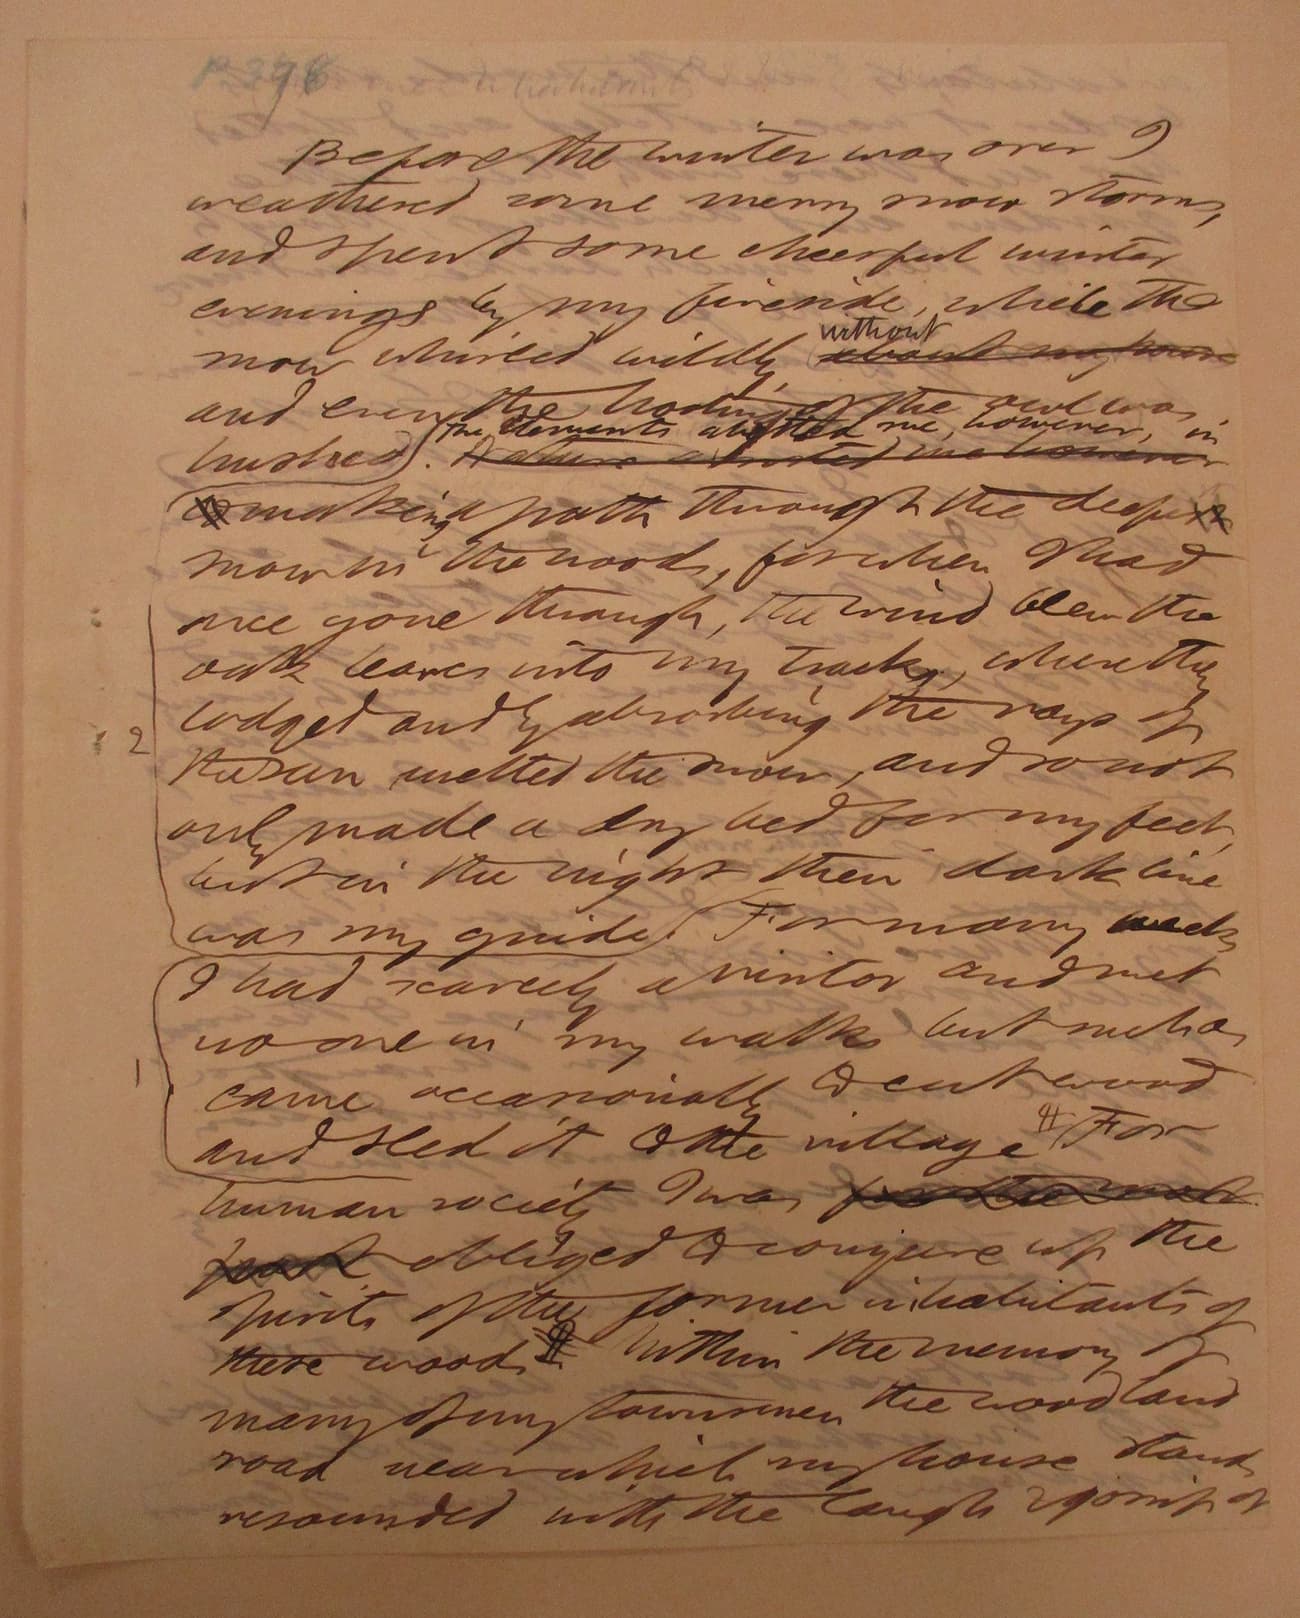 P 398
Before the winter was over I
weathered some merry snow storms,
and spent some cheerful winter
evenings by my fireside, while the
snow whirled wildly without about my house
and even the hooting of the owl was
the elements abetted me, however, in
hushed. Nature abetted me however
making a path through the deepest
snow in the woods, for when I had
once gone through, the wind blew the
oak leaves into my tracks, where they
lodged and by absorbing the rays of
2
the sun melted the snow, and so not
only made a dry bed for my feet,
but in the night their dark line
was my guide. For many weeks
I had scarcely a visitor and met
no one in my walks but such as
1
came occasionally to cut wood
and sled it to the village For
human society I was for the most
part obliged to conjure up the
spirits of the former inhabitants of
these woods. Within the memory of
many of my townsmen the woodland
road near which my house stands
resounded with the laugh & gossip of